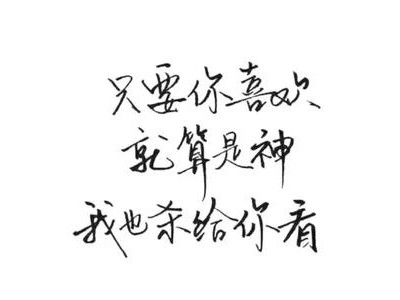 只要你喜欢
就算是神
我也杀给你看